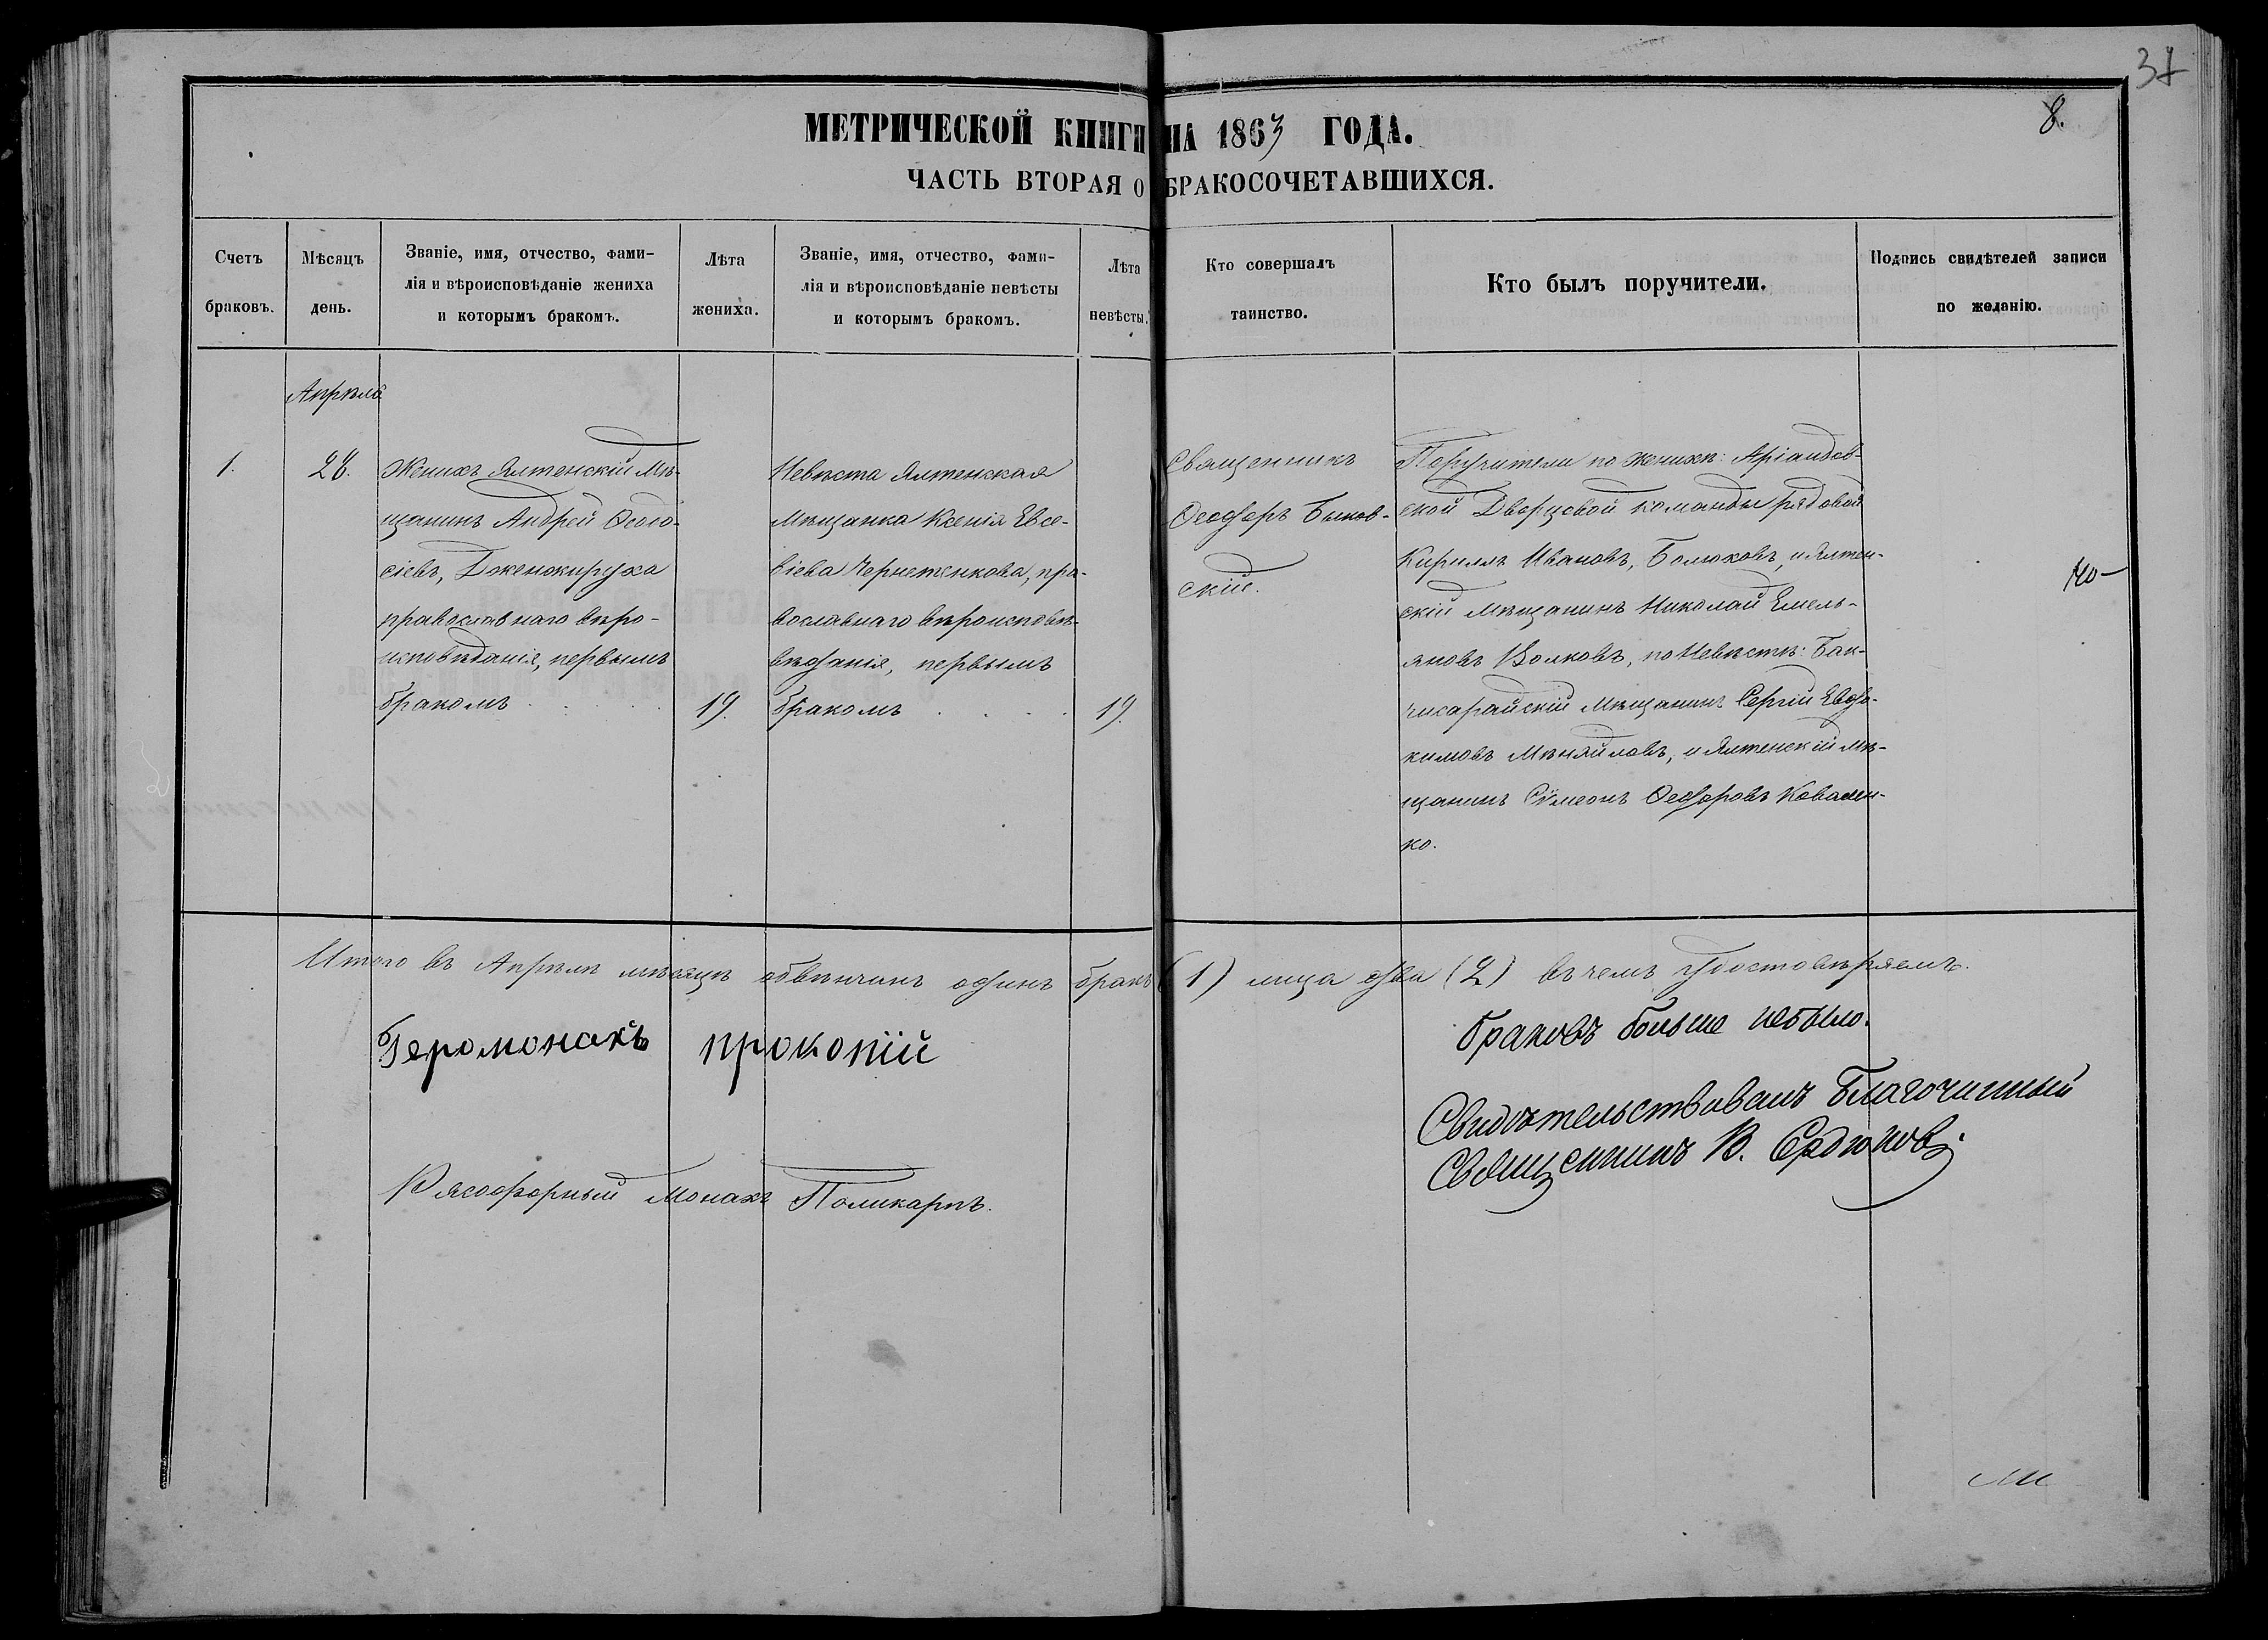 37
8.
МЕТРИЧЕСКОЙ КНИГИ НА 1863 ГОДА.
ЧАСТЬ ВТОРАЯ О БРАКОСОЧЕТАВШИХСЯ.
Счетъ
браковъ.
Мѣсяцъ
день.
Званіе, имя, отчество, фами-
лія и вѣроисповѣданіе жениха
и которымъ бракомъ.
Лѣта
жениха.
Званіе, имя, отчество, фами-
лія и вѣроисповѣданіе невѣсты
и которымъ бракомъ.
Лѣта
невѣсты.
Кто совершалъ
таинство.
Кто былъ поручители.
Подпись свидѣтелей записи
по желанію.
1.
Апрѣля
28.
Женихъ Ялтенскій Мѣ-
щанинъ Андрей Ѳеодо-
сіевъ, Дженжируха
православнаго вѣро-
исповѣданія, первымъ
бракомъ
19.
Невѣста Ялтенская
Мѣщанка Ксенія Евсе-
віева Чернеженкова, пра-
вославнаго вѣроисповѣ-
вѣданія, первымъ
бракомъ
19.
Священникъ
Ѳеодоръ Быков-
скій.
Поручители по женихѣ: Аріандов-
ской Дворцовой команды рядовой
Кириллъ Ивановъ, Болюховъ, и Ялтен-
скій Мѣщанинъ Николай Емель-
яновъ Волковъ, по Невѣстѣ: Бак-
чисарайскій Мѣщанинъ Сергій Евдо-
кимовъ Мѣняйловъ, и Ялтенскій мѣ-
щанинъ Сѵмеонъ Ѳеодоровъ Ковален-
ко.
Итого въ Апрѣлѣ мѣсяцѣ обвѣнчанъ одинъ бракъ (1) лица два (2) въ чемъ удостовѣряемъ.
Іеромонахъ прокопій
Рясофорный Монахъ Поликарпъ.
браковъ больше небыло.
Свидѣтельствовалъ Благочинный
Священникъ В. Сердюковъ.